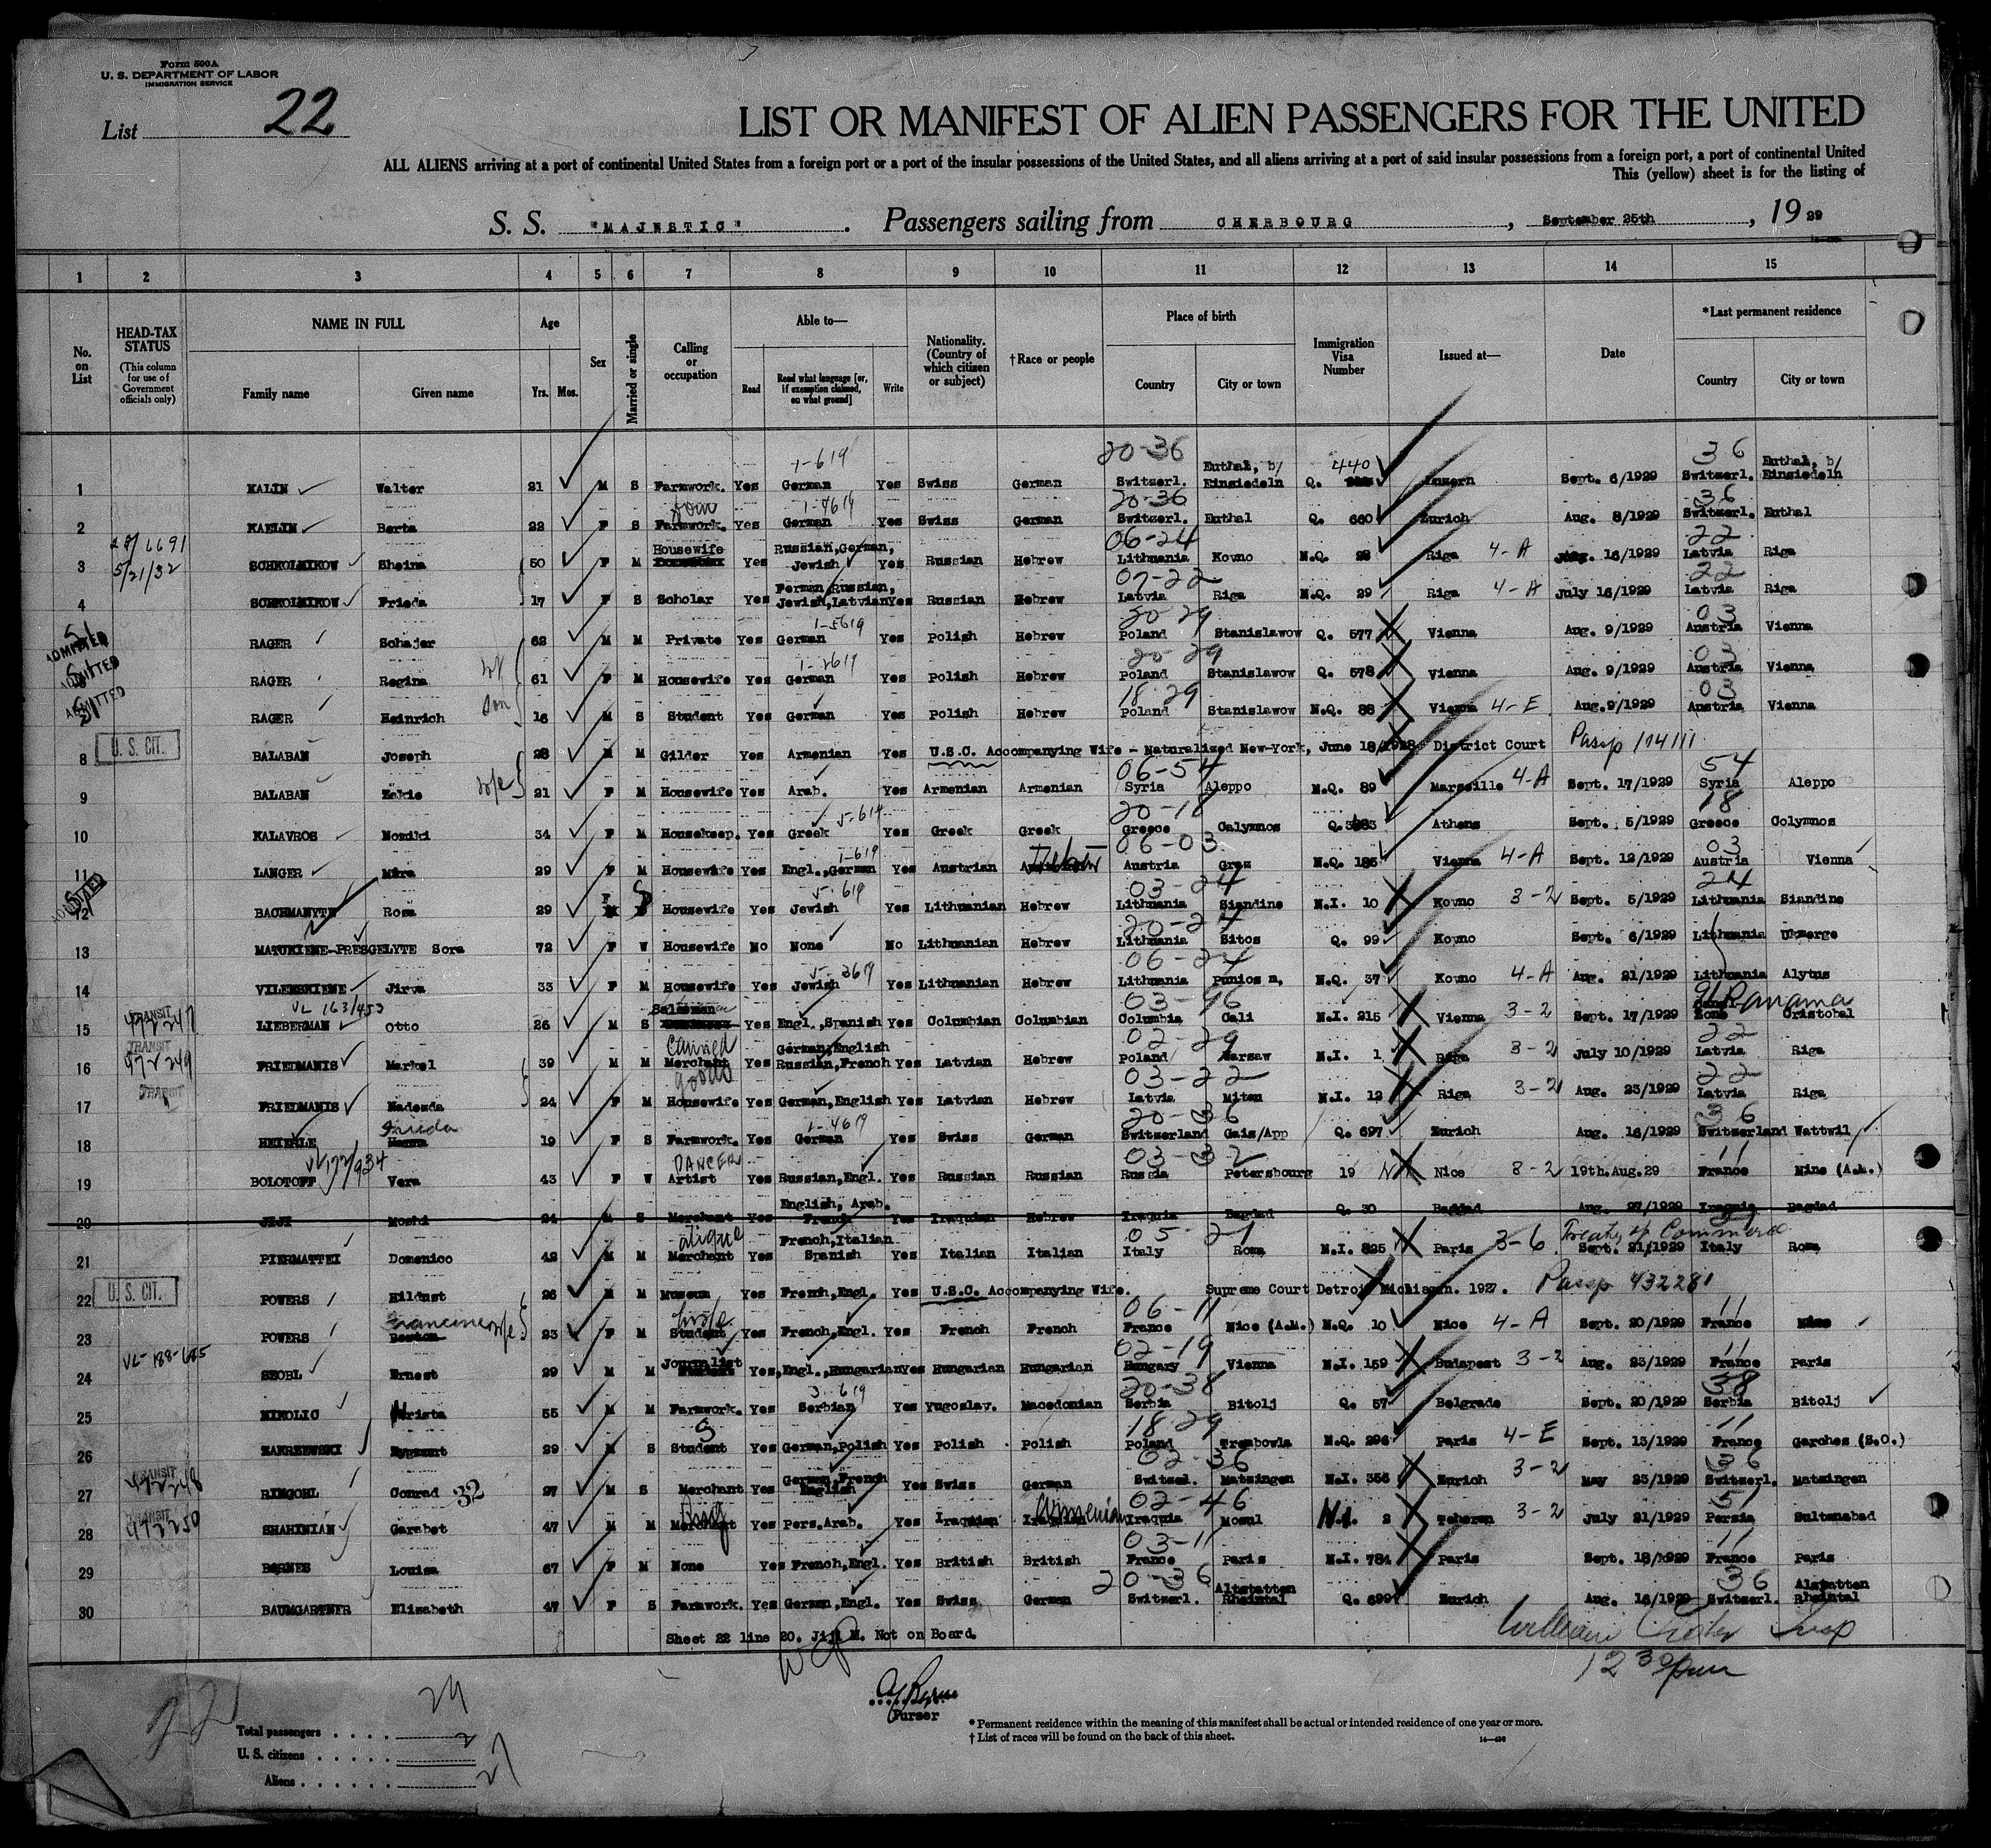 Form 500A
U. S. DEPARTMENT OF LABOR
IMMIGRATION SERVICE
List 22
LIST OR MANIFEST OF ALIEN PASSENGERS FOR THE UNITED
ALL ALIENS arriving at a port of continental United States from a foreign port or a port of the insular possessions of the United States, and all aliens arriving at a port of said insular possessions from a foreign port, a port of continental United
This (yellow) sheet is for the listing of
S. S. "MAJESTIC". Passengers sailing from CHERBOURG, September 25th, 1929
1 2 3 4 5 6 7 8 9 10 11 12 13 14 15
No. on List
HEAD-TAX STATUS (This column for use of Government officials only)
NAME IN FULL Family name Given name
Age Yrs. Mos.
Sex
Married or single
Calling or occupation
Able to— Read Read what language [or, if exemption claimed, on what ground] Write
Nationality. (Country of which citizen or subject)
†Race or people
Place of birth Country City or town
Immigration Visa Number
Issued at—
Date
*Last permanent residence Country City or town
20-36 36
1-619 Euthal, b/ 440 Euthal, b/
1 KALIN Walter 21 M S Farmwork. Yes German Yes Swiss German Switzerl. Einsiedeln Q. Luzern Sept. 6/1929 Switzerl. Einsiedeln
1-4619 20-36 36
2 KAELIN Berta 22 F S Farmwork. Yes German Yes Swiss German Switzerl. Euthal Q. 660 Zurich Aug. 8/1929 Switzerl. Euthal
Housewife Russian,German, 06-24 22
3 5/21/32 SCHKOLNIKOW Sheina 50 F M Yes Jewish Yes Russian Hebrew Lithuania Kovno N.Q. 28 Riga 4-A 16/1929 Latvia Riga
22
4 SCHKOLNIKOW Frieda 17 F S Scholar Yes Jewish,Latvian Yes Russian Hebrew Latvia Riga N.Q. 29 Riga 4-A July 16/1929 Latvia Riga
1-5619 20-29 03
ADMITTED RAGER Schajer 62 M M Private Yes German Yes Polish Hebrew Poland Stanislawow Q. 577 Vienna Aug. 9/1929 Austria Vienna
1-2619 20-29 03
ADMITTED RAGER Regina 61 F M Housewife Yes German Yes Polish Hebrew Poland Stanislawow Q. 578 Vienna Aug. 9/1929 Austria Vienna
son 18-29 03
ADMITTED RAGER Heinrich 16 M S Student Yes German Yes Polish Hebrew Poland Stanislawow N.Q. 88 Vienna 4-E Aug.9/1929 Austria Vienna
U. S. CIT.
8 BALABAN Joseph 28 M M Gilder Yes Armenian Yes U.S.C. Accompanying Wife - Naturalized New-York, June 18/1928 District Court Passp 114111
06-54 54
9 BALABAN Zekie wife 21 F M Housewife Yes Arab. Yes Armenian Armenian Syria Aleppo N.Q. 89 Marseille 4-A Sept. 17/1929 Syria Aleppo
20-18 18
10 KALAVROS Nomiki 34 F M Housekeep. Yes Greek Yes Greek Greek Greece Calymnos Athens Sept. 5/1929 Greece Colymnos
1-619 06-03 03
11 LANGER Mara 29 F M Housewife Yes Engl.,German Yes Austrian Austria Graz N.Q. 185 Vienna 4-A Sept. 12/1929 Austria Vienna
5-619 03-24 24
12 BACHMANYTE Rosa 29 F Housewife Yes Jewish Yes Lithuanian Hebrew Lithuania Siandine N.I. 10 Kovno 3-2 Sept. 5/1929 Lithuania Siandine
20-24
13 MATUKIENE-PRESGELYTE Sora 72 F W Housewife No None No Lithuanian Hebrew Lithuania Sitos Q. 99 Kovno Sept. 6/1929 Lithuania Ukmerge
5-3619 06-24
14 VILENSKIENE Jirva 33 F M Housewife Yes Jewish Yes Lithuanian Hebrew Lithuania Punios m, N.Q. 37 Kovno 4-A Aug. 21/1929 Lithuania Alytus
VL 163/453 Salesman 03-96 Panama
15 TRANSIT LIEBERMAN Otto 26 M S Yes Engl.,Spanish Yes Columbian Columbian Columbia Cali N.I. 215 Vienna 3-2 Sept. 17/1929 Zone Cristobal
canned German,English 02-29 22
16 TRANSIT 972249 FRIEDMANIS Markel 39 M M Merchant Yes Russian,French Yes Latvian Hebrew Poland Warsaw N.I. 1 Riga 3-2 July 10/1929 Latvia Riga
goods 03-22 22
17 TRANSIT FRIEDMANIS Nadezda 24 F M Housewife Yes German,English Yes Latvian Hebrew Latvia Mitau N.I. 12 Riga 3-2 Aug. 23/1929 Latvia Riga
Frieda 1-4619 20-36 36
18 HEIERLE 19 F S Farmwork. Yes German Yes Swiss German Switzerland Gais/App Q. 697 Zurich Aug. 16/1929 Switzerland Wattwil
DANCER 03-32 11
19 BOLOTOFF Vera 43 F W Artist Yes Russian,Engl. Yes Russian Russian Russia Petersbourg 19 Nice 8-2 19th.Aug.29 France Nine (A.M.)
English, Arab.
20 JIJI Moshi 24 M S Merchant Yes French Yes Iraquian Hebrew Iraquia Bagdad Q. 30 Bagdad Aug. 27/1929 Iraquia Bagdad
French,Italian 05-21 Treaty of Commerce
21 PIERMATTEI Domenico 42 M M Merchant Yes Spanish Yes Italian Italian Italy Roma N.I. 825 Paris 3-6 Sept. 21/1929 Italy Roma
U. S. CIT.
22 POWERS Hildust 26 M M Museum Yes French,Engl. Yes U.S.C. Accompanying Wife. Supreme Court Detroit Michigan. 1927. Passp 432281
Francine wife wife 06-11 11
23 POWERS 23 F M Student Yes French,Engl. Yes French French France Nice (A.M.) N.Q. 10 Nice 4-A Sept. 20/1929 France Nice
VL-188-685 Journalist 02-19 11
24 SEOBL Ernest 29 M M Yes,Engl.,Hungarian Yes Hungarian Hungarian Hungary Vienna N.I. 159 Budapest 3-2 Aug. 23/1929 France Paris
3-619 20-38 38
25 NIKOLIC 55 M M Farmwork. Yes Serbian Yes Yugoslav. Macedonian Serbia Bitolj Q. 57 Belgrade Sept. 20/1929 Serbia Bitolj
18-29 11
26 ZAKRZEWSKI Zygmunt 29 M S Student Yes German,Polish Yes Polish Polish Poland Trembowla N.Q. 296 Paris 4-E Sept. 13/1929 France Garches (S.O.)
German,French 02-36 36
27 TRANSIT RINGOHL Conrad 32 27 M S Merchant Yes English Yes Swiss German Switzel. Matzingen N.I. 356 Zurich 3-2 May 23/1929 Switzerl. Matzingen
Armenian 02-46 51
28 972250 SHAHINIAN Garabet 47 M M Merchant Yes Pers.Arab. Yes Iraquian Iraquia Mosul N.I. 2 Teheran 3-2 July 21/1929 Persia Sultanabad
03-11 11
29 BARNES Louisa 67 F M None Yes French,Engl. Yes British British France Paris N.I. 784 Paris Sept. 18/1929 France Paris
20-36 Altstatten 36 Alstatten
30 BAUMGARTNER Elizabeth 47 F S Farmwork. Yes German,Engl. Yes Swiss German Switzerl. Rheintal Q. 699 Zurich Aug. 16/1929 Switzerl. Rheintal
Sheet 22 line 20. Jiji M. Not on Board.
12 30 pm
Purser
Total passengers 29
U. S. citizens 2
Aliens 27
* Permanent residence within the meaning of this manifest shall be actual or intended residence of one year or more.
† List of races will be found on the back of this sheet.